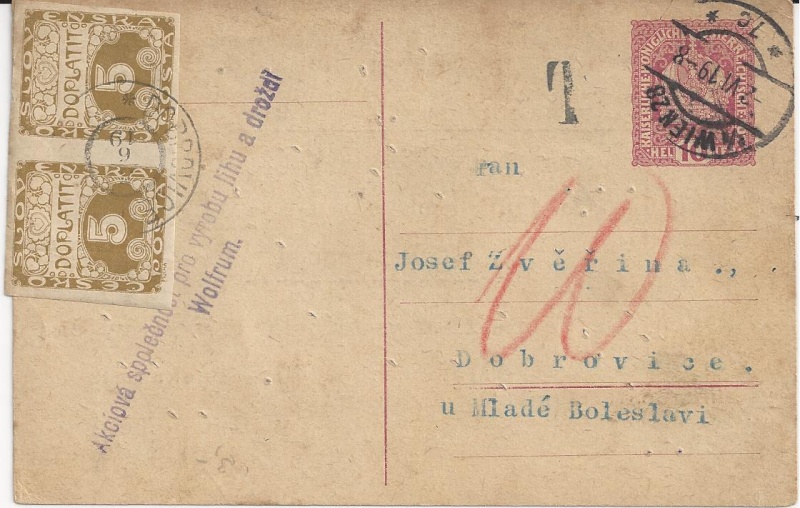 ČESKO SLOVENSKÁ POŠTA
DOPLATIT
5
ČESKO SLOVENSKÁ POŠTA
DOPLATIT
5
Akciová společnost pro výrobu lihu a droždí
Wolfrum.
T
HEL 10
WIEN
2.VI.19-8
* 7c *
Pan
10
Josef Zvěřina.,
Dobrovice.
u Mladé Boleslavi